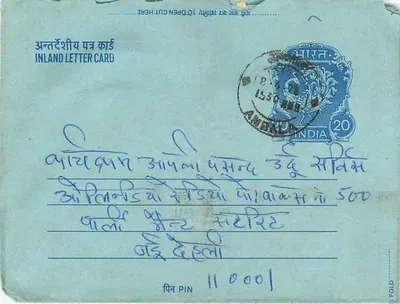 यहाँ खोलने के लिए काटिए
TO OPEN CUT HERE
अन्तर्देशीय पत्र कार्ड
INLAND LETTER CARD
भारत
INDIA 20
1530
आपकी पसन्द उर्दू सर्विस
रेडियो पो। बाकस नं 500
पार्ली मेन्ट सटरिट
नई देहली
पिन PIN 110001
FOLD